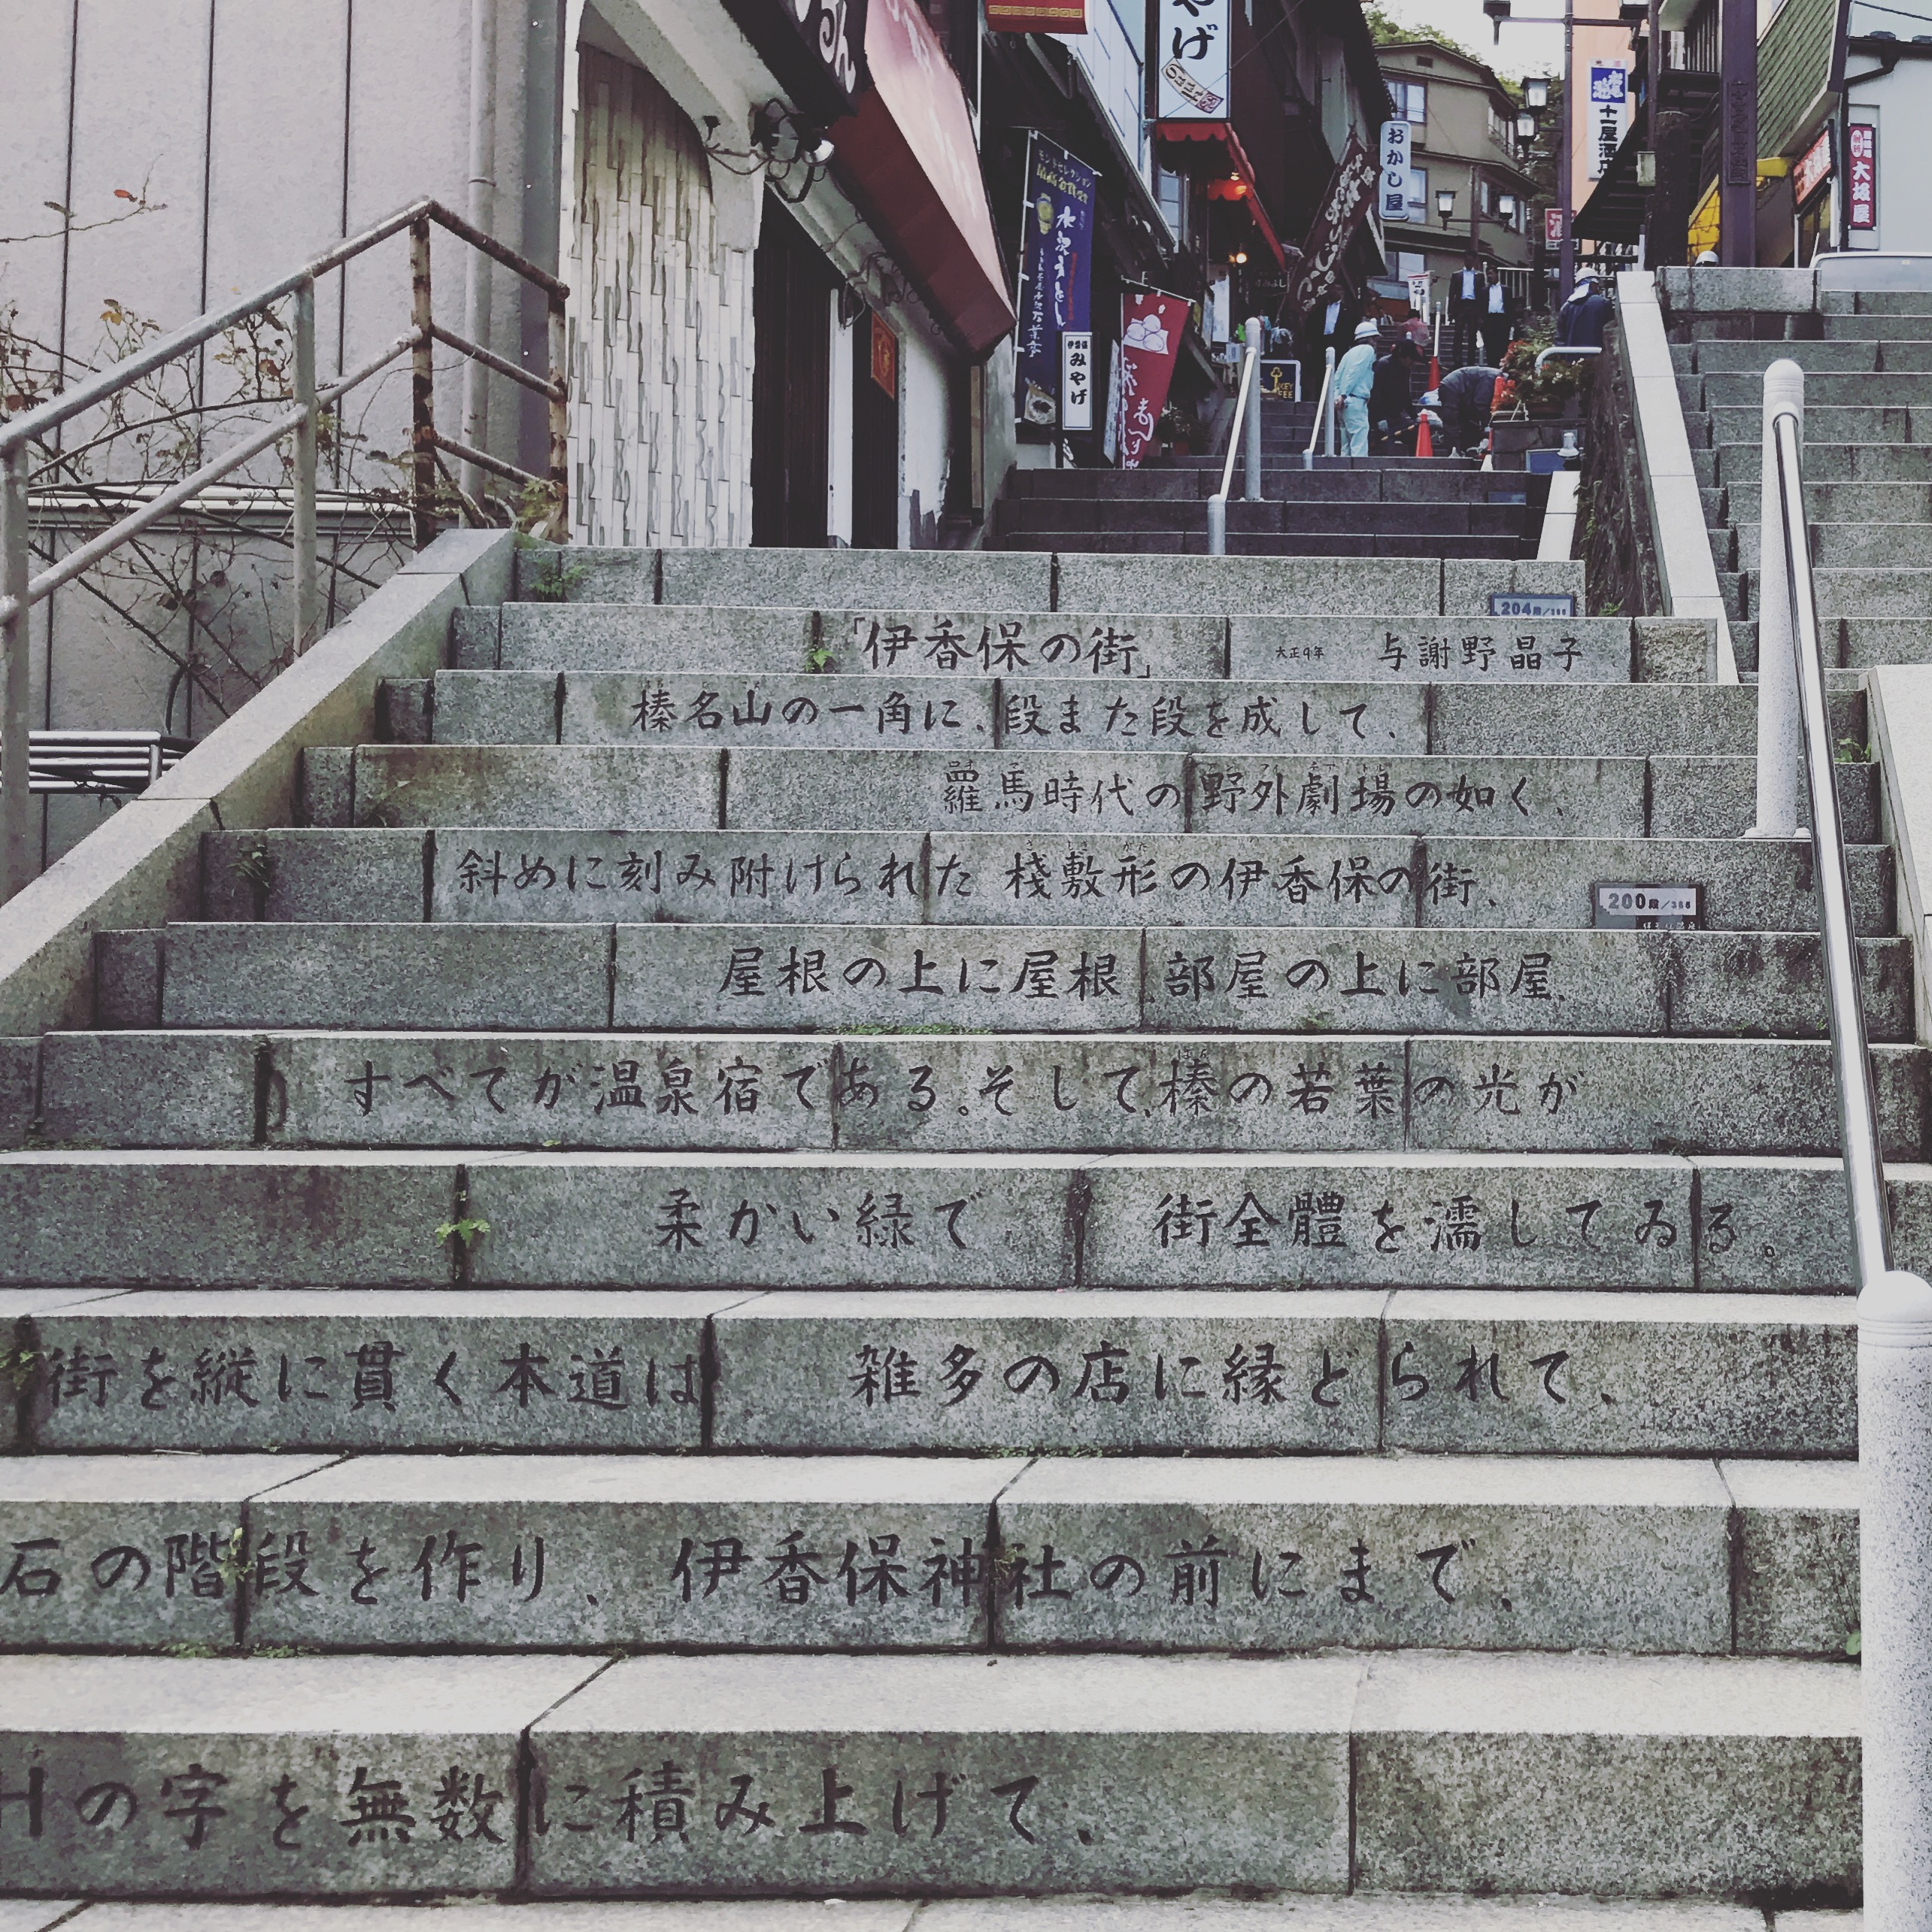 やげ
おかし屋
大坂屋
水沢うどん
伊香保
みやげ
204段/365
「伊香保の街」 大正9年 与謝野晶子
榛名山の一角に、段また段を成して、
羅馬時代の野外劇場の如く、
斜めに刻み附けられた 桟敷形の伊香保の街、
200段/365
屋根の上に屋根、部屋の上に部屋、
すべてが温泉宿である。そして、榛の若葉の光が
柔かい緑で 街全體を濡してゐる。
街を縦に貫く本道は 雑多の店に縁どられて、
石の階段を作り、伊香保神社の前にまで、
Hの字を無数に積み上げて、